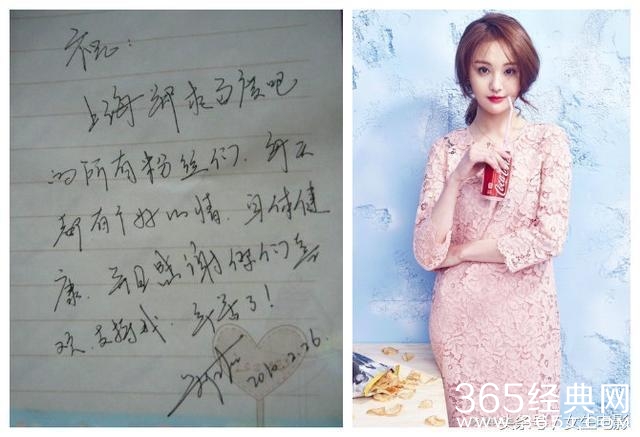 祝：
上海郑爽百度吧
的所有粉丝们，每天
都有个好心情，身体健
康，并且感谢你们喜
欢、支持我，辛苦了！
2010.2.26
365经典网
头条号 / 女生电影